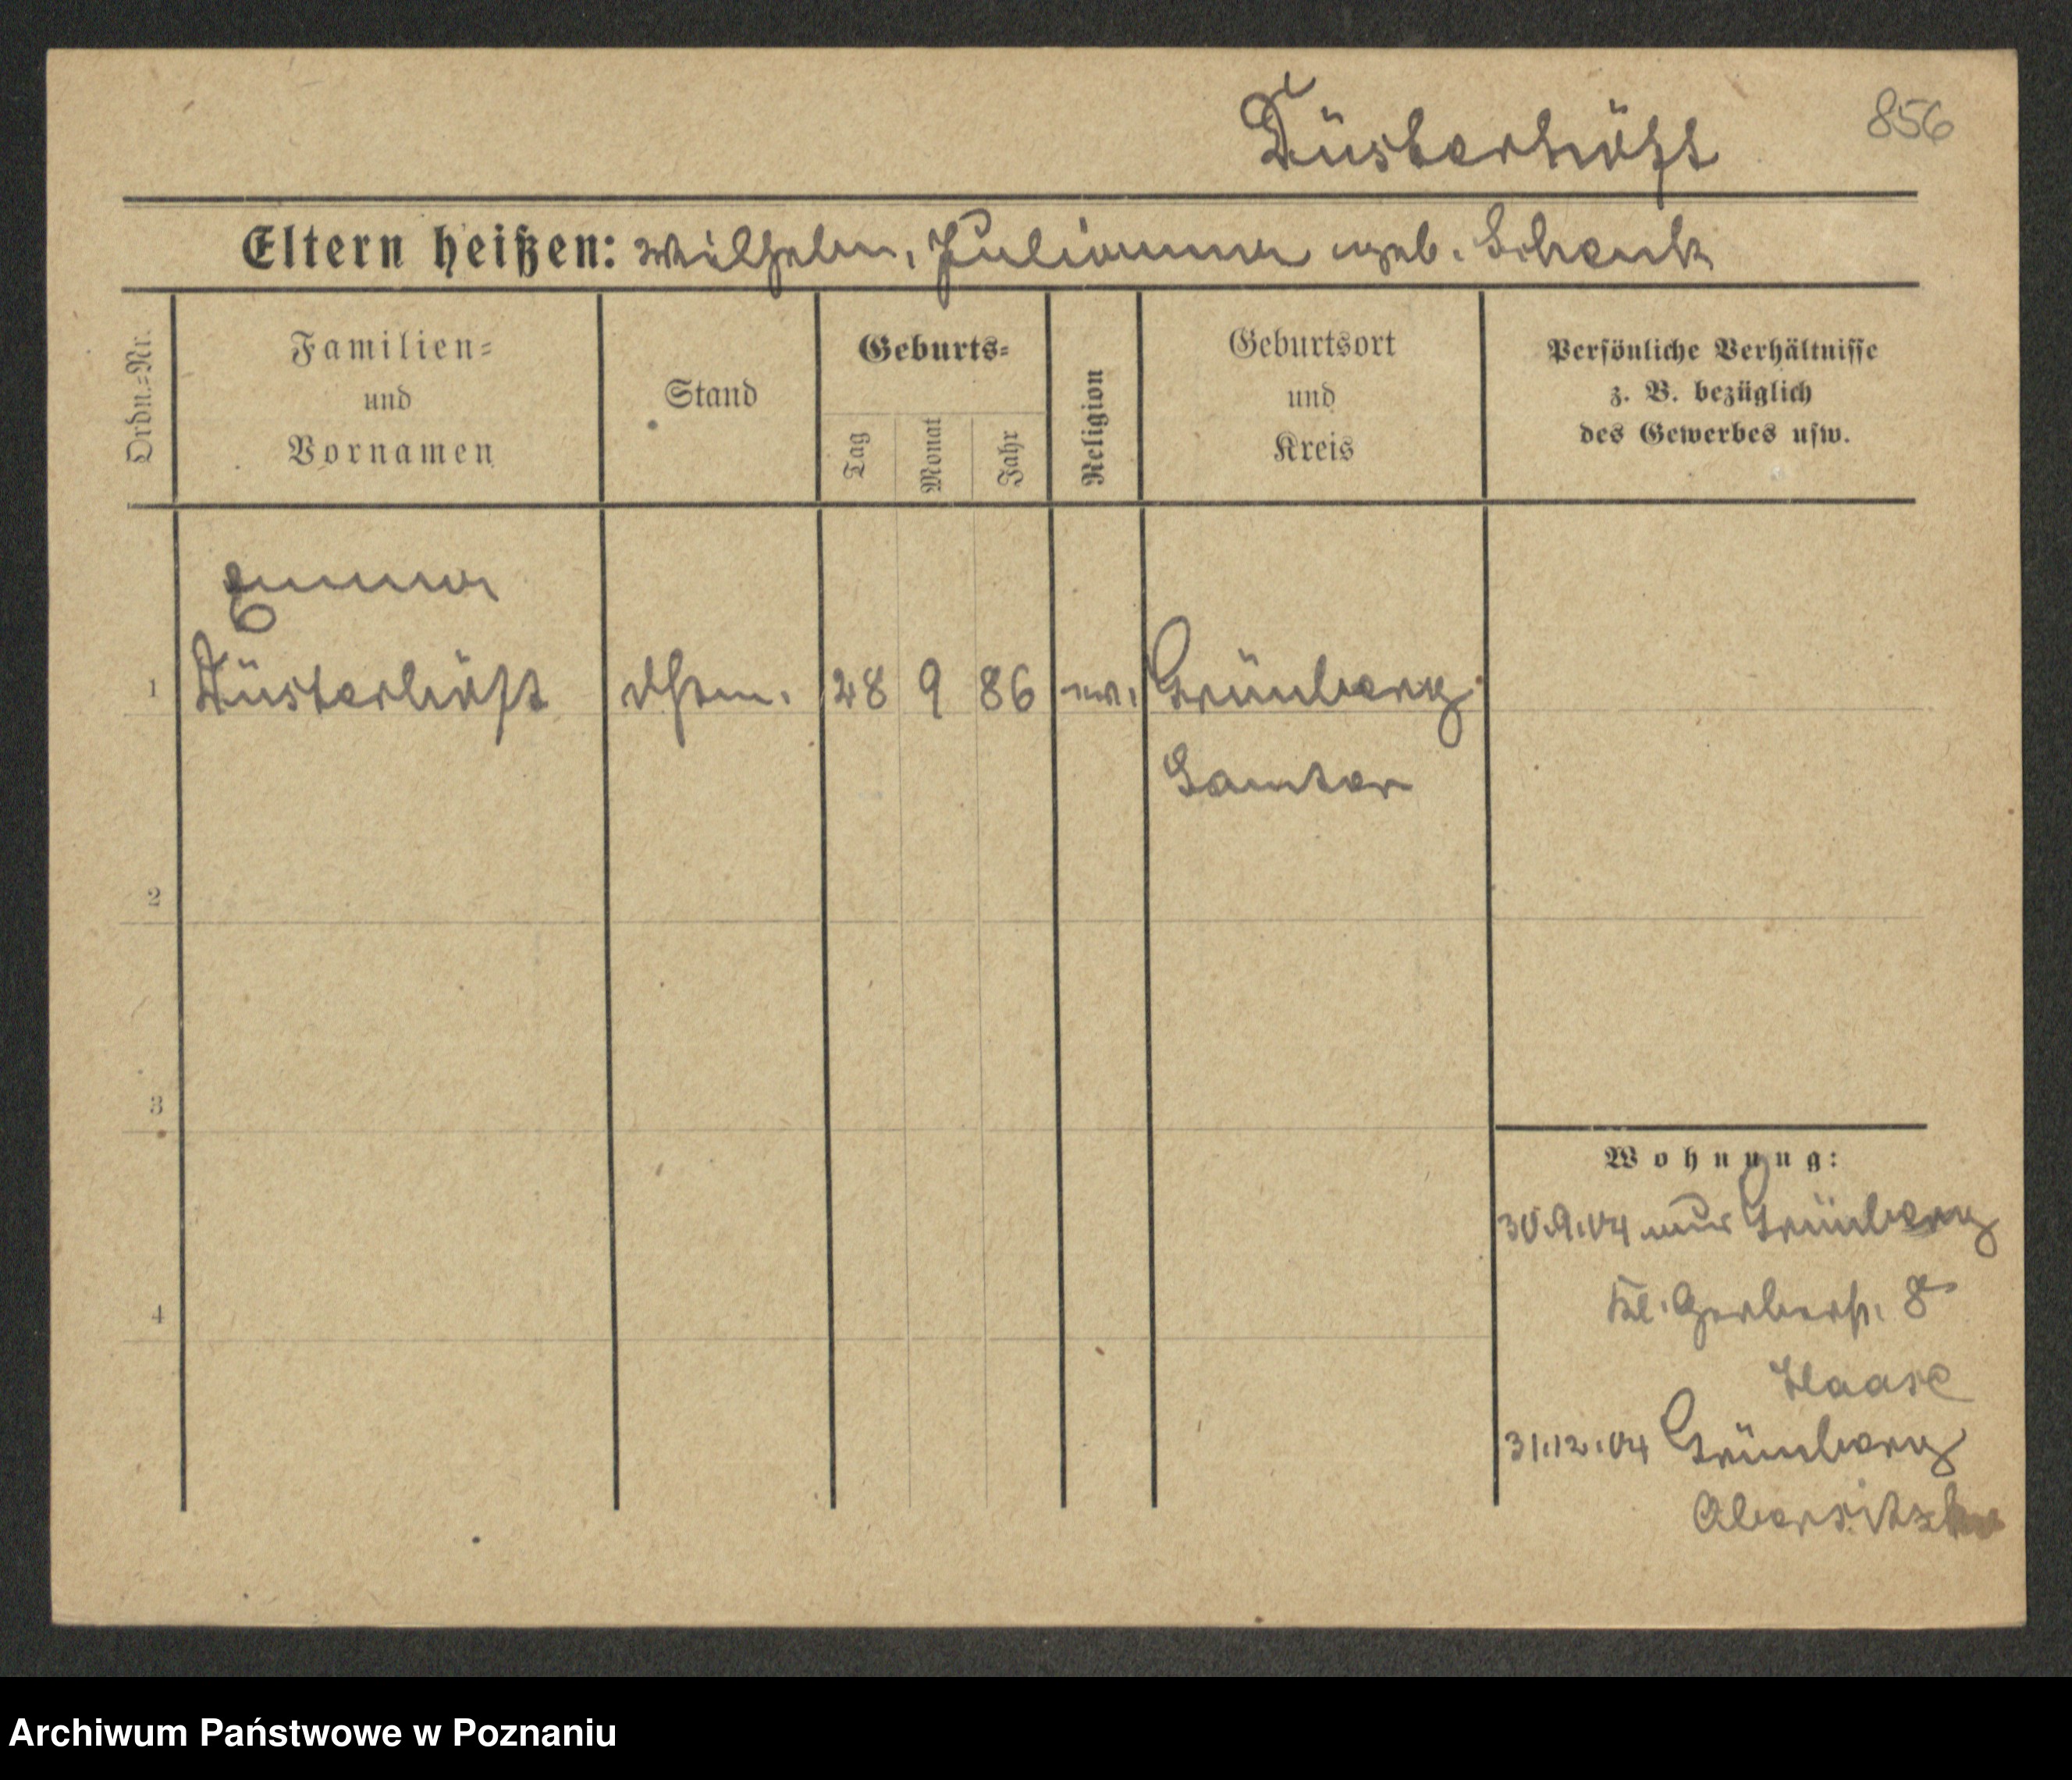 Düsterhöft
856
Eltern heißen: Wilhelm, Julianna geb. Schenk
Ordn.=Nr.
Familien=
und
Vornamen
Stand
Geburts=
Tag
Monat
Jahr
Religion
Geburtsort
und
Kreis
Persönliche Verhältnisse
z. B. bezüglich
des Gewerbes usw.
Emma
1 Düsterhöft 28 9 86 ev. Grünberg
Samter
2
3
4
Wohnung:
30.9.04 aus Grünberg
Kl. Gerberstr. 8
Haase
31.12.04 Grünberg
Archiwum Państwowe w Poznaniu